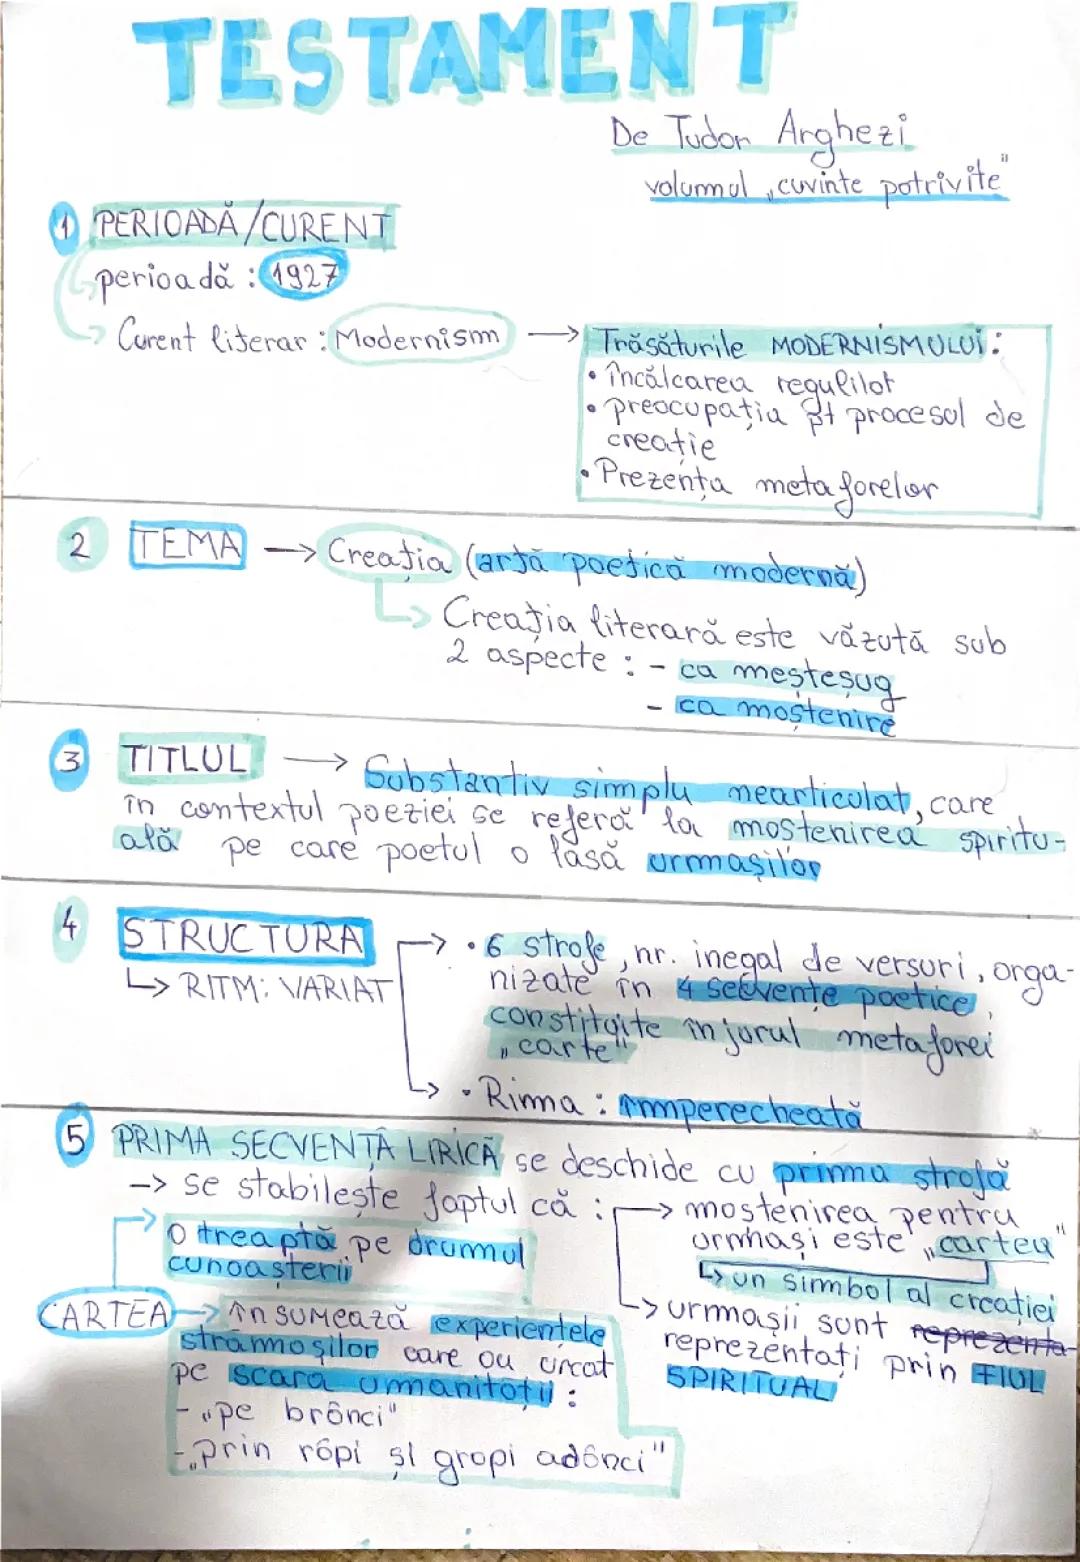 TESTAMENT
De Tudor Arghezi
volumul „cuvinte potrivite"
1 PERIOADĂ/CURENT
perioadă : 1927
Curent literar : Modernism → Trăsăturile MODERNISMULUI:
• încălcarea regulilot
• preocupația pt procesul de
creație
• Prezența metaforelor
2 TEMA → Creația (artă poetică modernă)
↳ Creația literară este văzută sub
2 aspecte : - ca meșteșug
- ca moștenire
3 TITLUL → Substantiv simplu nearticulat, care
în contextul poeziei se referă la moștenirea spiritu-
ală pe care poetul o lasă urmașilor
4 STRUCTURA → • 6 strofe, nr. inegal de versuri, orga-
↳ RITM: VARIAT
nizate în 4 secvențe poetice,
constituite în jurul metaforei
„carte"
• Rima : împerecheată
5 PRIMA SECVENȚĂ LIRICĂ se deschide cu prima strofă
-> se stabilește faptul că : → moștenirea pentru
urmași este „cartea"
↳ un simbol al creației
→ urmașii sunt reprezenta-
reprezentați prin FIUL
SPIRITUAL
→ O treaptă pe drumul
cunoașterii
CARTEA → însumează experiențele
strămoșilor care au urcat
pe scara umanității :
- „pe brânci"
- „prin râpi și gropi adânci"